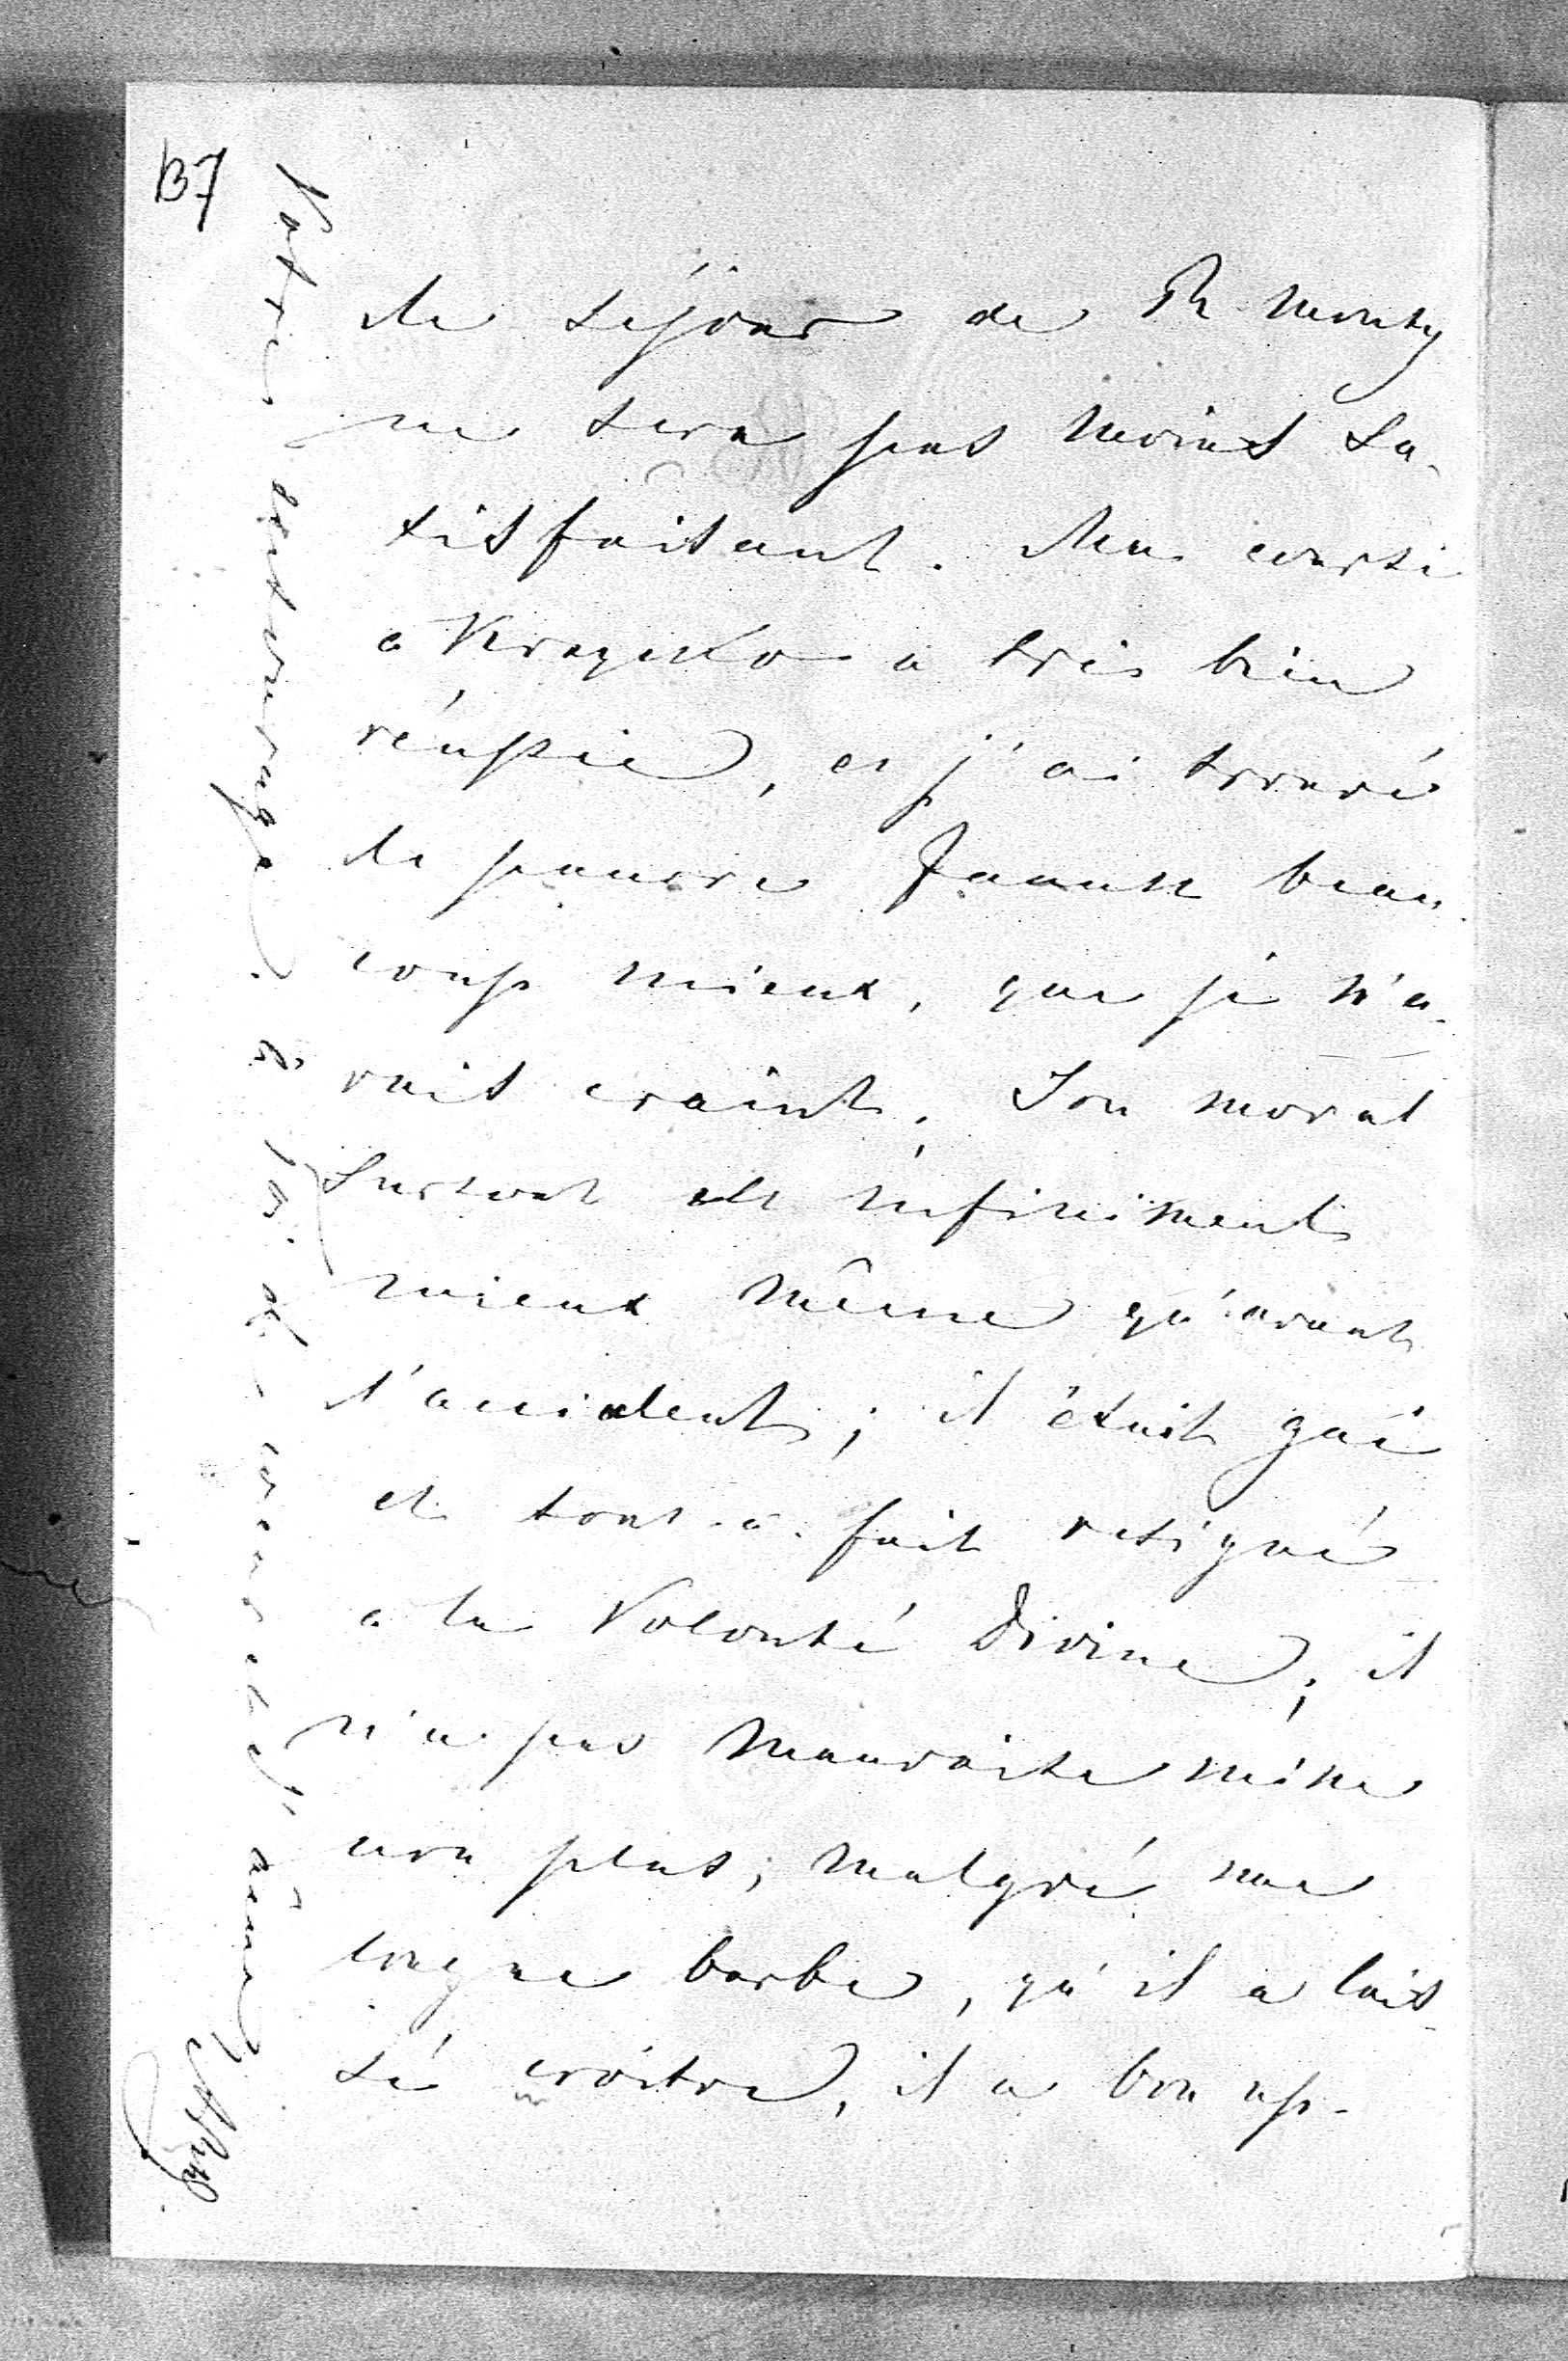 137
le séjour de
ne sera pas moins sa-
tisfaisant. Ma course
a a très bien
réussie, et j'ai trouvé
le pauvre beau-
coup mieux, que je n'a-
vais craint. Son moral
surtout est infiniment
mieux même qu'avant
l'accident; il était gai
et tout-à-fait resigné
a la Volonté Divine; il
n'a pas mauvaise mine
non plus; malgré une
longue barbe, qu'il a lais-
sé croître, il a bon ap-
Votre entourage. à